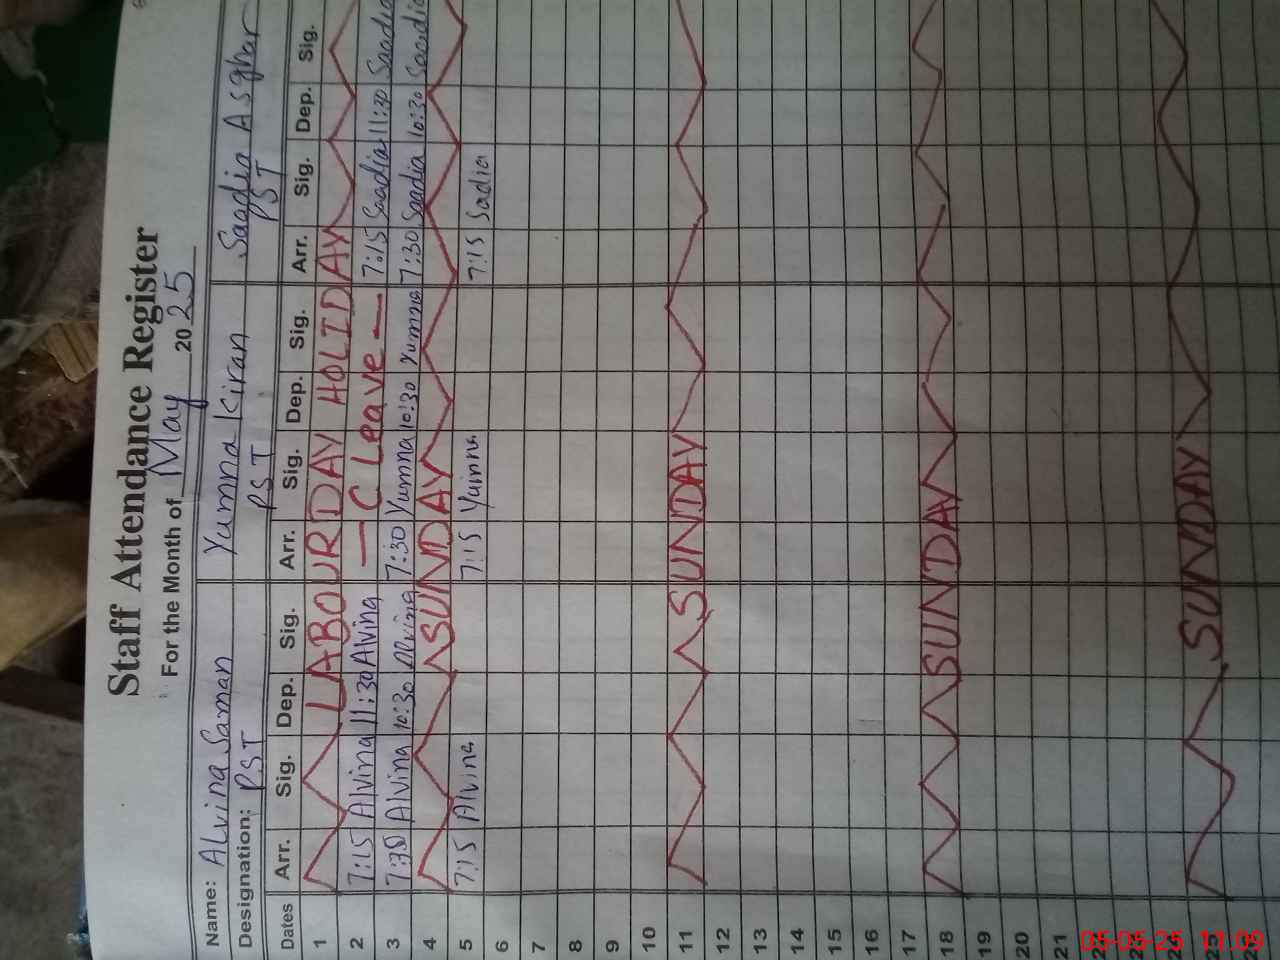 Staff Attendance Register
For the Month of May 2025
Name: Alvina Saman Yumna Kiran Saadia Asghar
Designation: PST PST PST
Dates Arr. Sig. Dep. Sig. Arr. Sig. Dep. Sig. Arr. Sig. Dep. Sig.
1 LABOUR DAY HOLIDAY
2 7:15 Alvina 11:30 Alvina — C Leave — 7:15 Saadia 11:30 Saadia
3 7:30 Alvina 10:30 Alvina 7:30 Yumna 10:30 Yumna 7:30 Saadia 10:30 Saadia
4 SUNDAY
5 7:15 Alvina 7:15 Yumna 7:15 Sadia
6
7
8
9
10
11 SUNDAY
12
13
14
15
16
17
18 SUNDAY
19
20
21
24
25 SUNDAY
05-05-25 11:09